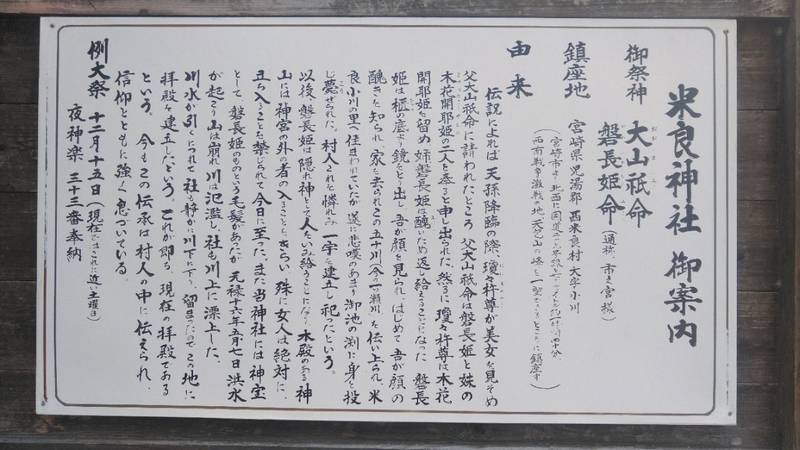 米良神社 御案内
御祭神 大山祇命
磐長姫命 (通称 市之宮様)
鎮座地 宮崎県児湯郡西米良村大字小川
由来
伝説によれば 天孫降臨の際、瓊々杵尊が美女を見そめ
父大山祇命に請われたところ 父大山祇命は磐長姫と妹の
木花開耶姫の二人を奉ると申し出られた。然るに瓊々杵尊は木花
開耶姫を留め 姉磐長姫は醜いため返し給えることになった 磐長
姫は 底より鏡をとり出し 吾が顔を見られ、はじめて吾が顔の
醜さを知られ、家を去られ この五十川(今の一ツ瀬川)を伝い上られ、米
良小川の里へ住まわれていたが 遂に悲嘆のあまり 御池の渕に身を投
じ薨せられた。村人これを憐れみ 一宇を建立し祀ったという。
以後、磐長姫は隠れ神として人をいみ給うことになり 本殿のある神
山には神宮の外の者の入ることをきらい 殊に女人は絶対に、
立ち入ることを禁じられて今日に至った。また当神社には神宝
として、磐長姫のものという毛髪があったが 元禄十六年五月七日 洪水
が起こり山は崩れ 川は氾濫し 社も川上に漂上した。
川水が引くにつれて 社も静かに川下に下り、留まったので この地に
拝殿を建立したという。これが即ち、現在の拝殿である
という。今もこの伝承は村人の中に伝えられ、
信仰とともに強く息づいている。
例大祭 十二月十五日(現在ではこれに近い土曜日)
夜神楽 三十三番奉納